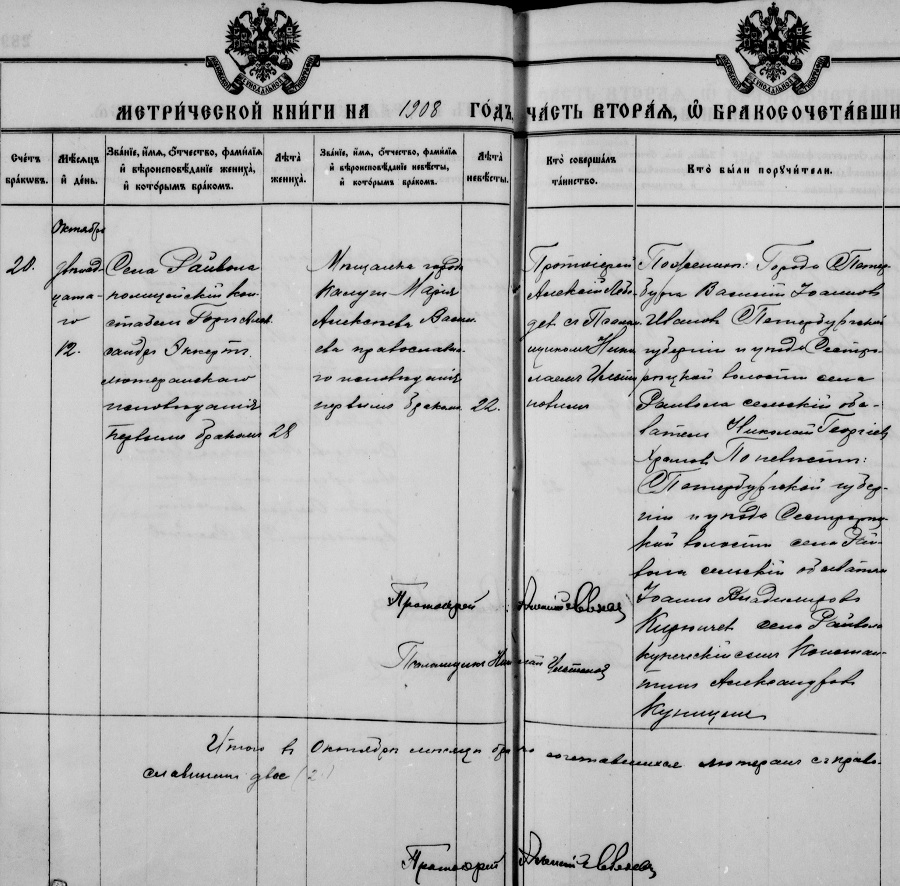 МЕТРИ́ЧЕСКОЙ КНИ́ГИ НА 1908 ГО́ДЪ, ЧА́СТЬ ВТОРА́Я, Ѽ БРАКОСОЧЕТА́ВШИ
Сче́тъ бра́ковъ.
Мѣ́сяцъ и҆ де́нь.
Зва́нїе, и҆́мя, ѻ҆́тчество, фами́лїя и҆ вѣроисповѣ́данїе жениха̀, и҆ кото́рымъ бра́комъ.
Лѣ́та жениха̀.
Зва́нїе, и҆́мя, ѻ҆́тчество, фами́лїя и҆ вѣроисповѣ́данїе невѣ́сты, и҆ кото́рымъ бра́комъ.
Лѣ́та невѣ́сты.
Кто̀ соверша́лъ та́инство.
Кто̀ бы́ли поручи́тели.
Октябрь
20.
двѣнад-
цата-
го
12.
Села Райвола
полицейскій кон-
стабель Алек-
сандръ
лютеранскаго
исповѣданія
первымъ бракомъ 28
Мѣщанка города
Калуги Марія
Алексѣева Васи-
ева православна-
го исповѣданія
первымъ бракомъ 22.
Протоіерей
Алексій
съ Псалом-
щикомъ Нико-
лаемъ
По женихѣ: Города СПетер-
бурга Василій Іоанновъ
Ивановъ СПетербургской
губерніи и уѣзда Сестро-
рѣцкой волости села
Райвола сельскій обы-
ватель Николай Георгіевъ
Храмовъ По невѣстѣ:
СПетербургской губер-
ніи и уѣзда Сестрорѣц-
кой волости села Рай-
вола сельскій обыватель
Іоаннъ Владиміровъ
Кирпичевъ села Райвола
купеческій сынъ Констан-
тинъ Александровъ
Куницынъ
Протоіерей Алексій
Псаломщикъ Николай
Итого въ Октябрѣ мѣсяцѣ браковъ сочетавшихся лютеранъ съ право-
славными двое (2)
Протоіерей Алексій